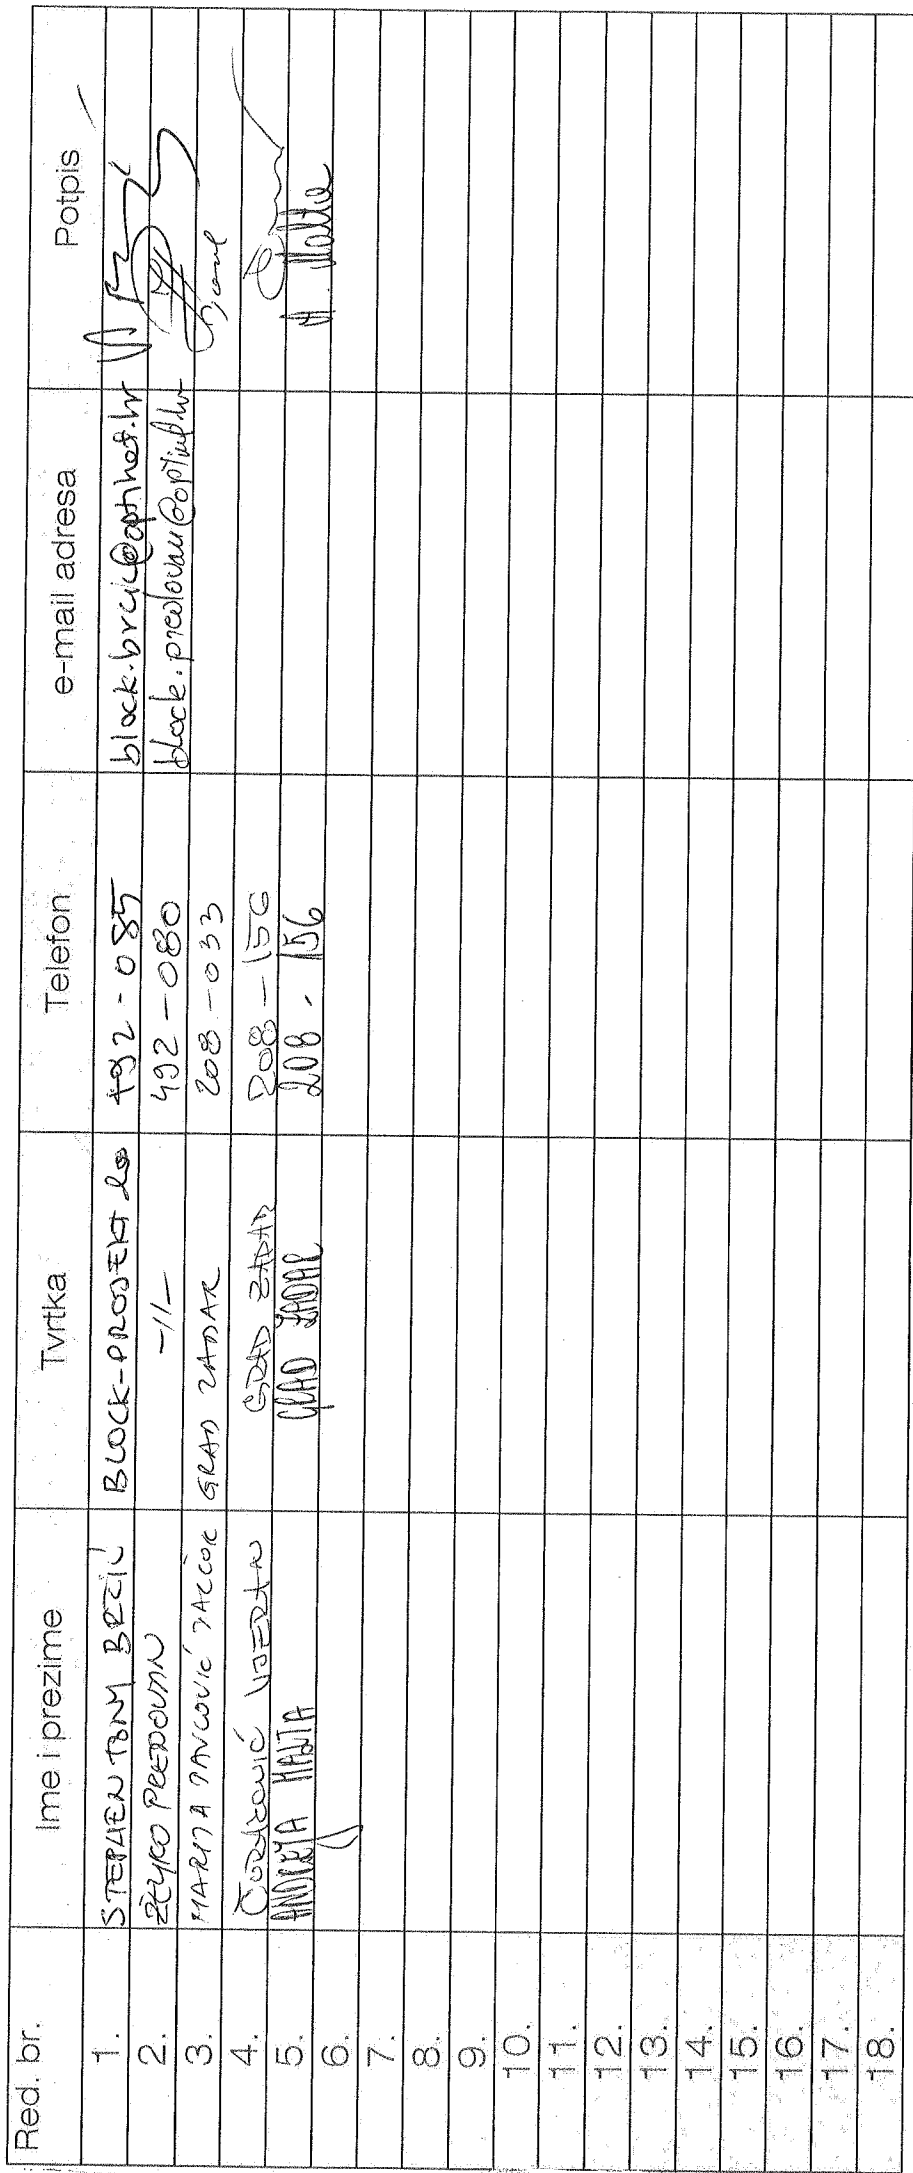 Red. br. Ime i prezime Tvrtka Telefon e-mail adresa Potpis
1. STEPHEN TONY BRČIĆ BLOCK-PROJEKT 492-085 block.brcic@optinet.hr
2. ŽELJKO PREDOVAN -11- 492-080 block.predovan@optinet.hr
3. MARINA PAVLOVIĆ GRAD ZADAR 208-033
4. GRAD ZADAR 208-156
5. ANDRIJA MALTA GRAD ZADAR 208-156
6.
7.
8.
9.
10.
11.
12.
13.
14.
15.
16.
17.
18.